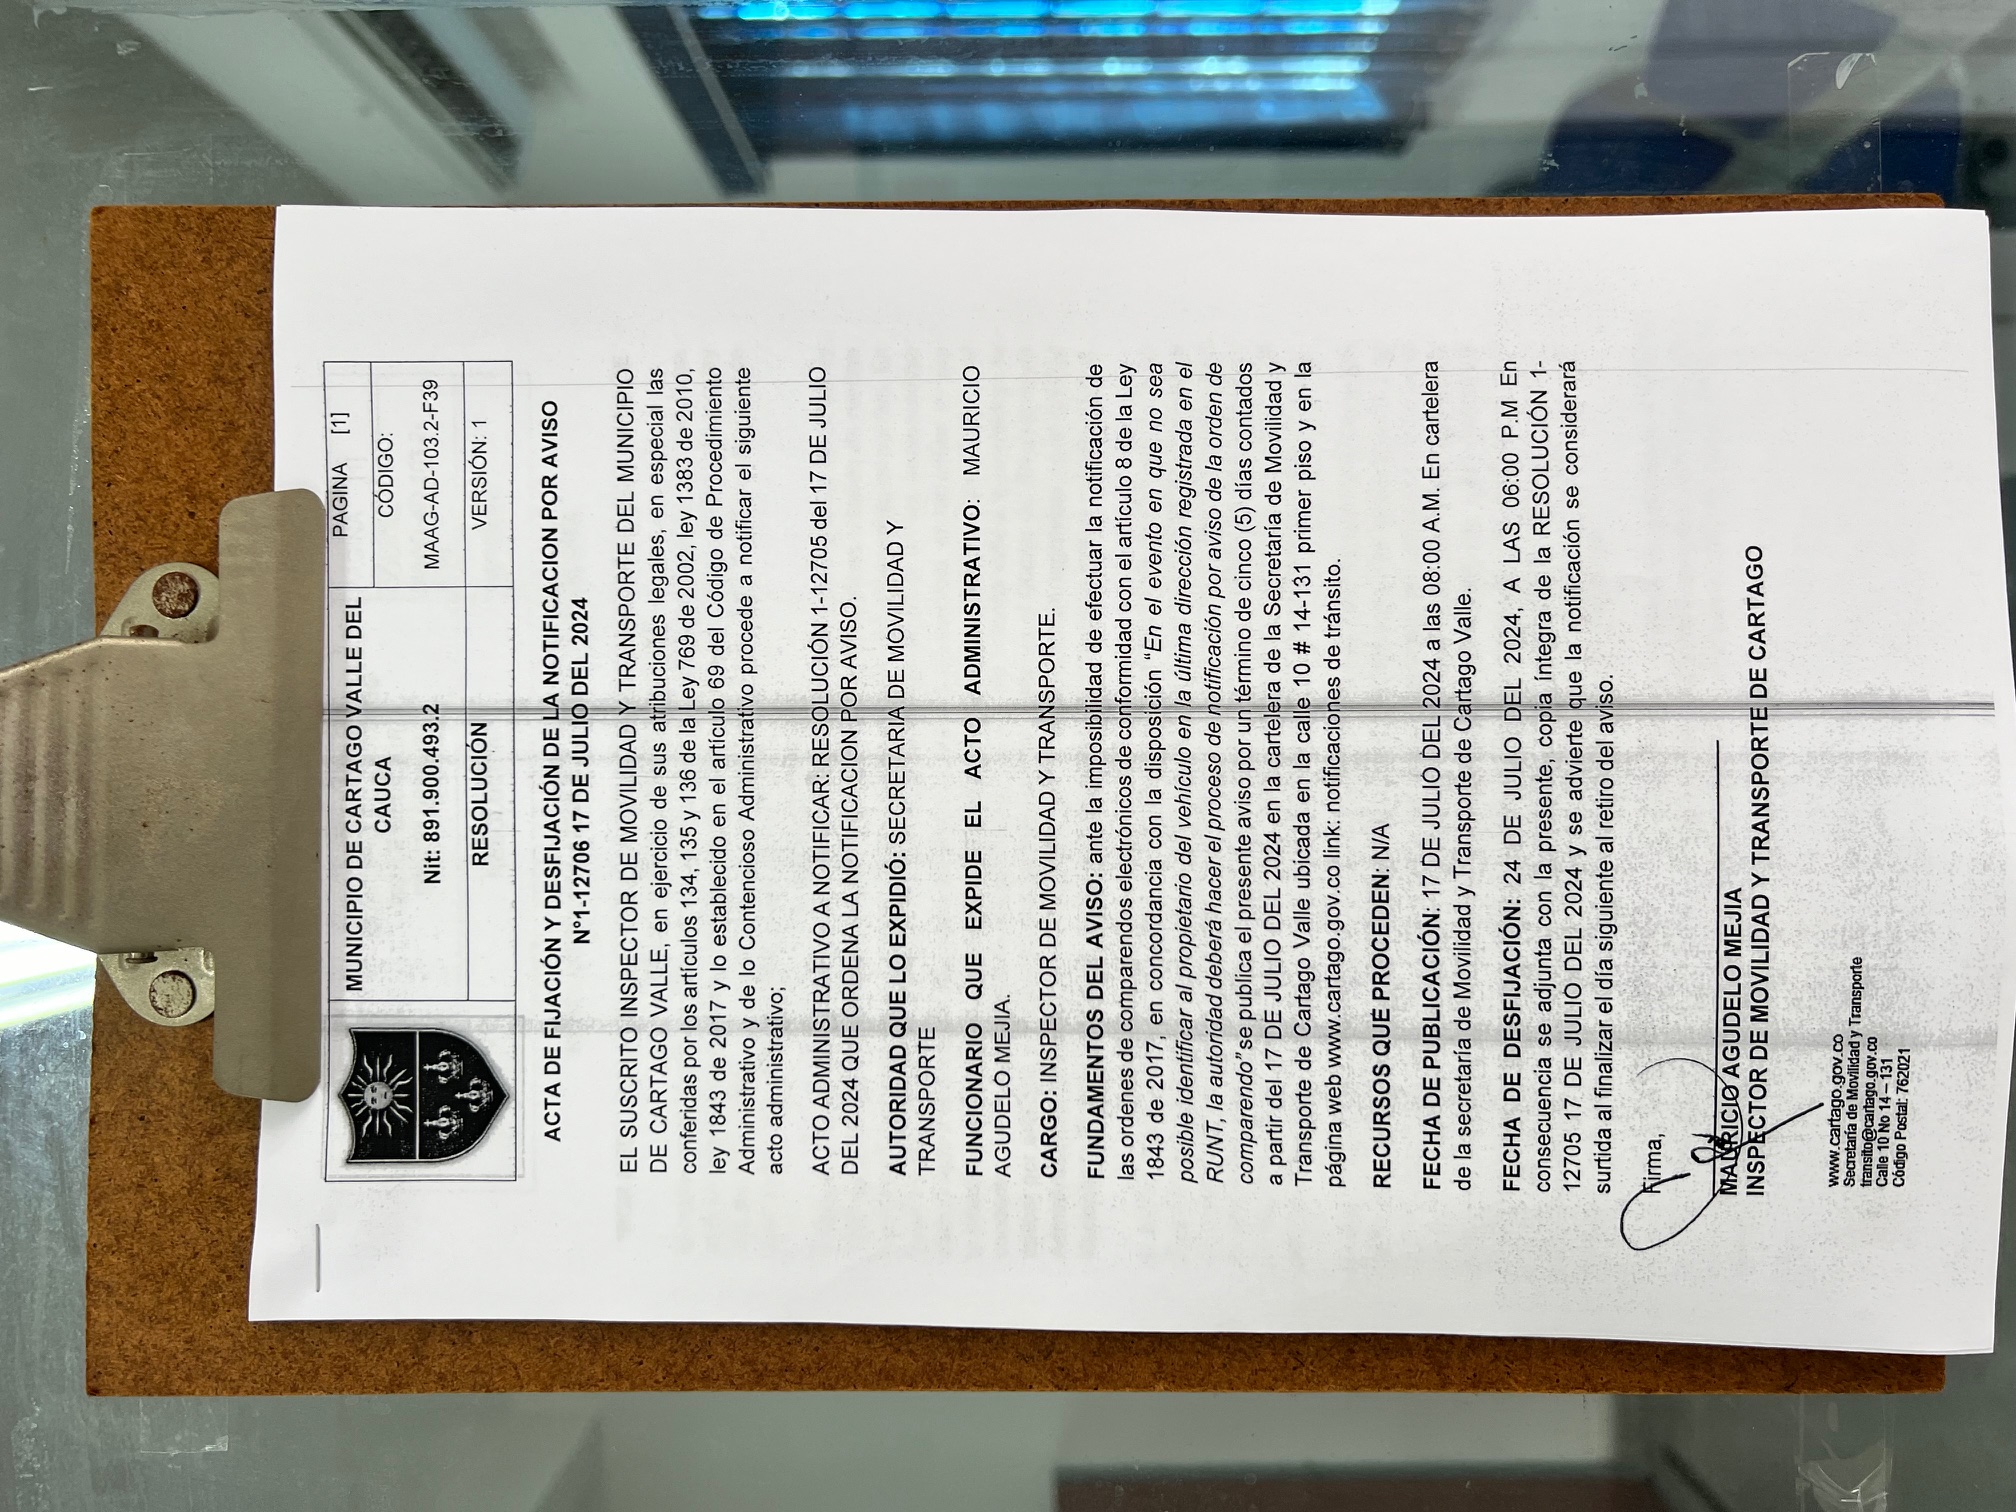 MUNICIPIO DE CARTAGO VALLE DEL
CAUCA
Nit: 891.900.493.2
RESOLUCIÓN
PAGINA [1]
CÓDIGO:
MAAG-AD-103.2-F39
VERSIÓN: 1
ACTA DE FIJACIÓN Y DESFIJACIÓN DE LA NOTIFICACION POR AVISO
N°1-12706 17 DE JULIO DEL 2024
EL SUSCRITO INSPECTOR DE MOVILIDAD Y TRANSPORTE DEL MUNICIPIO
DE CARTAGO VALLE, en ejercicio de sus atribuciones legales, en especial las
conferidas por los artículos 134, 135 y 136 de la Ley 769 de 2002, ley 1383 de 2010,
ley 1843 de 2017 y lo establecido en el artículo 69 del Código de Procedimiento
Administrativo y de lo Contencioso Administrativo procede a notificar el siguiente
acto administrativo;
ACTO ADMINISTRATIVO A NOTIFICAR: RESOLUCIÓN 1-12705 del 17 DE JULIO
DEL 2024 QUE ORDENA LA NOTIFICACION POR AVISO.
AUTORIDAD QUE LO EXPIDIÓ: SECRETARIA DE MOVILIDAD Y
TRANSPORTE
FUNCIONARIO QUE EXPIDE EL ACTO ADMINISTRATIVO: MAURICIO
AGUDELO MEJIA.
CARGO: INSPECTOR DE MOVILIDAD Y TRANSPORTE.
FUNDAMENTOS DEL AVISO: ante la imposibilidad de efectuar la notificación de
las ordenes de comparendos electrónicos de conformidad con el artículo 8 de la Ley
1843 de 2017, en concordancia con la disposición "En el evento en que no sea
posible identificar al propietario del vehículo en la última dirección registrada en el
RUNT, la autoridad deberá hacer el proceso de notificación por aviso de la orden de
comparendo" se publica el presente aviso por un término de cinco (5) días contados
a partir del 17 DE JULIO DEL 2024 en la cartelera de la Secretaría de Movilidad y
Transporte de Cartago Valle ubicada en la calle 10 # 14-131 primer piso y en la
página web www.cartago.gov.co link: notificaciones de tránsito.
RECURSOS QUE PROCEDEN: N/A
FECHA DE PUBLICACIÓN: 17 DE JULIO DEL 2024 a las 08:00 A.M. En cartelera
de la secretaría de Movilidad y Transporte de Cartago Valle.
FECHA DE DESFIJACIÓN: 24 DE JULIO DEL 2024, A LAS 06:00 P.M En
consecuencia se adjunta con la presente, copia íntegra de la RESOLUCIÓN 1-
12705 17 DE JULIO DEL 2024 y se advierte que la notificación se considerará
surtida al finalizar el día siguiente al retiro del aviso.
Firma,
MAURICIO AGUDELO MEJIA
INSPECTOR DE MOVILIDAD Y TRANSPORTE DE CARTAGO
www.cartago.gov.co
Secretaría de Movilidad y Transporte
transito@cartago.gov.co
Calle 10 No 14 – 131
Código Postal: 762021